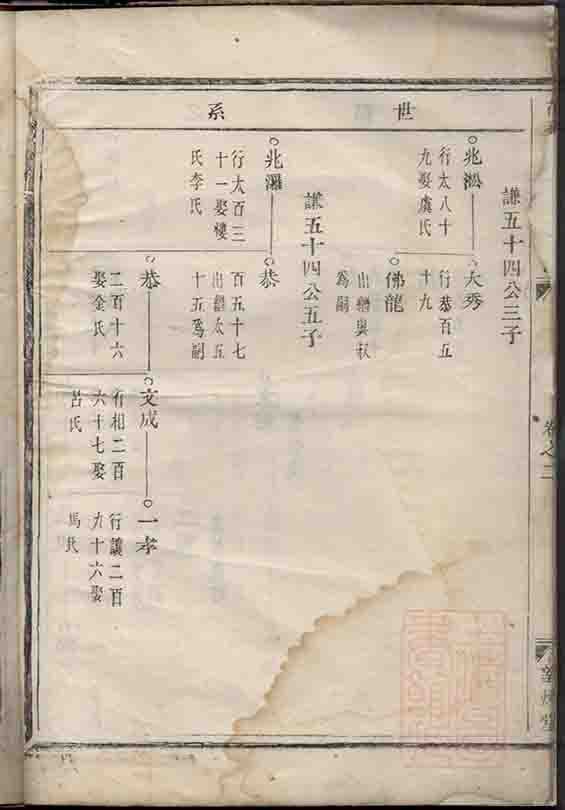 世系
謙五十四公三子
兆淞
行太八十
九娶虞氏
大秀
行恭百五
十九
佛龍
出繼與叔
爲嗣
謙五十四公五子
兆
行太百三
十一娶樓
氏李氏
恭
百五十七
出繼太五
十五爲嗣
恭
二百十六
娶金氏
文成
行相二百
六十七娶
呂氏
一孝
行議二百
九十六娶
馬氏
卷之二